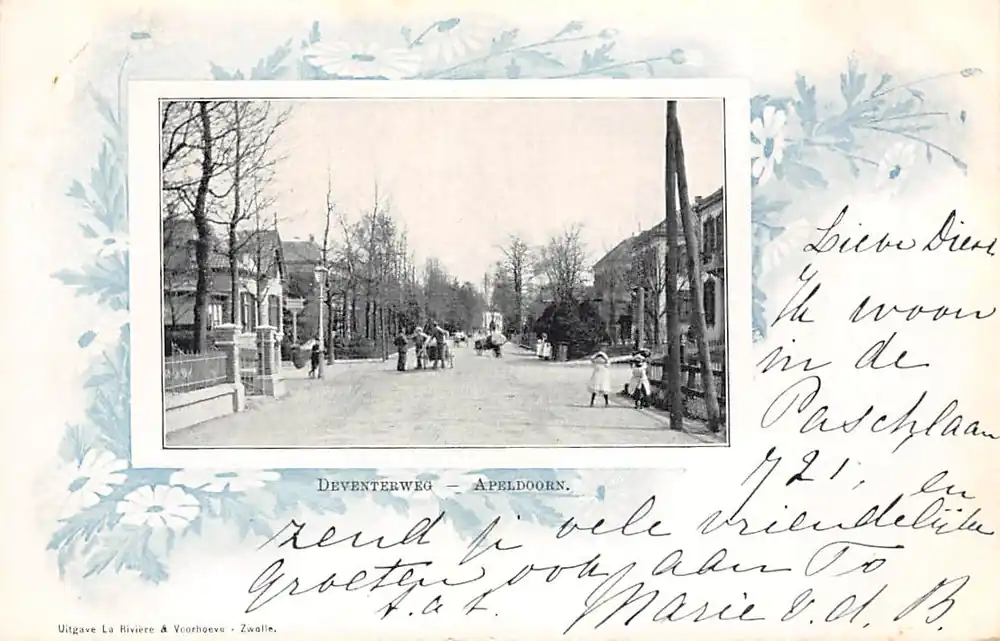 DEVENTERWEG — APELDOORN.
Lieve Dien
Ik woon
in de
Paschlaan
721, en
zend je vele vriendelijke
groeten ook aan To
t.a.t. Marie v.d. B.
Uitgave La Rivière & Voorhoeve - Zwolle.